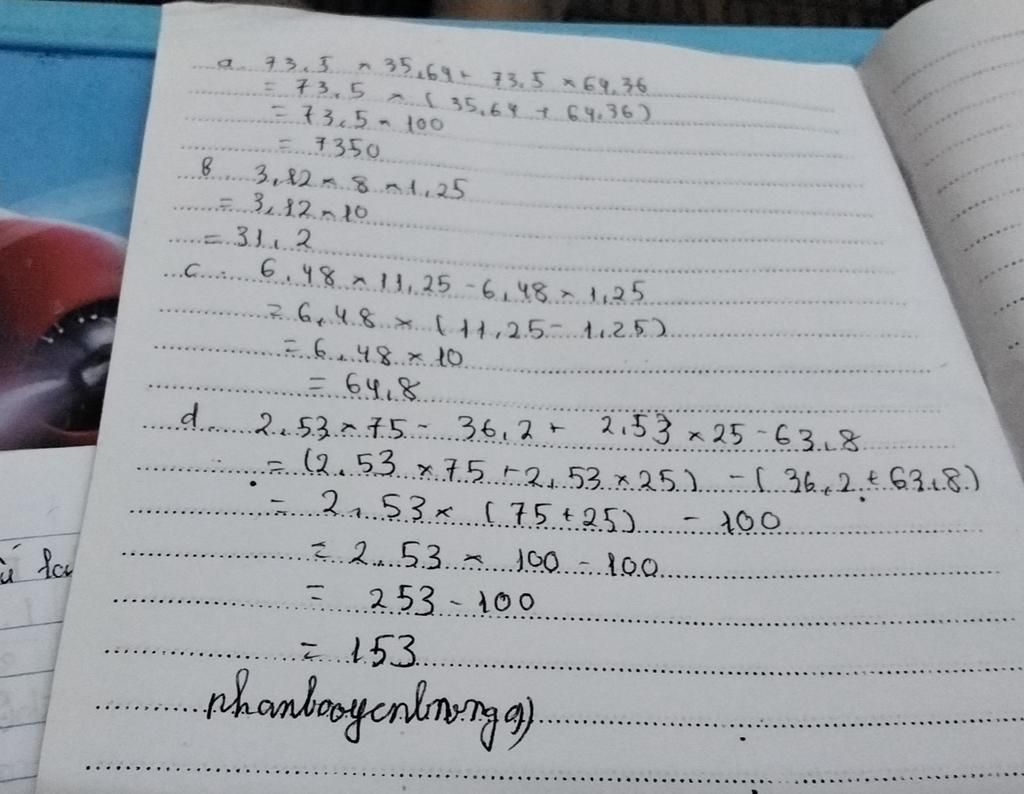 a. 73,5 × 35,64 + 73,5 × 64,36
= 73,5 × (35,64 + 64,36)
= 73,5 × 100
= 7350
B. 3,12 × 8 × 1,25
= 3,12 × 10
= 31,2
c. 6,48 × 11,25 - 6,48 × 1,25
= 6,48 × (11,25 - 1,25)
= 6,48 × 10
= 64,8
d. 2,53 × 75 - 36,2 + 2,53 × 25 - 63,8
= (2,53 × 75 + 2,53 × 25) - (36,2 + 63,8)
= 2,53 × (75 + 25) - 100
= 2,53 × 100 - 100
= 253 - 100
= 153